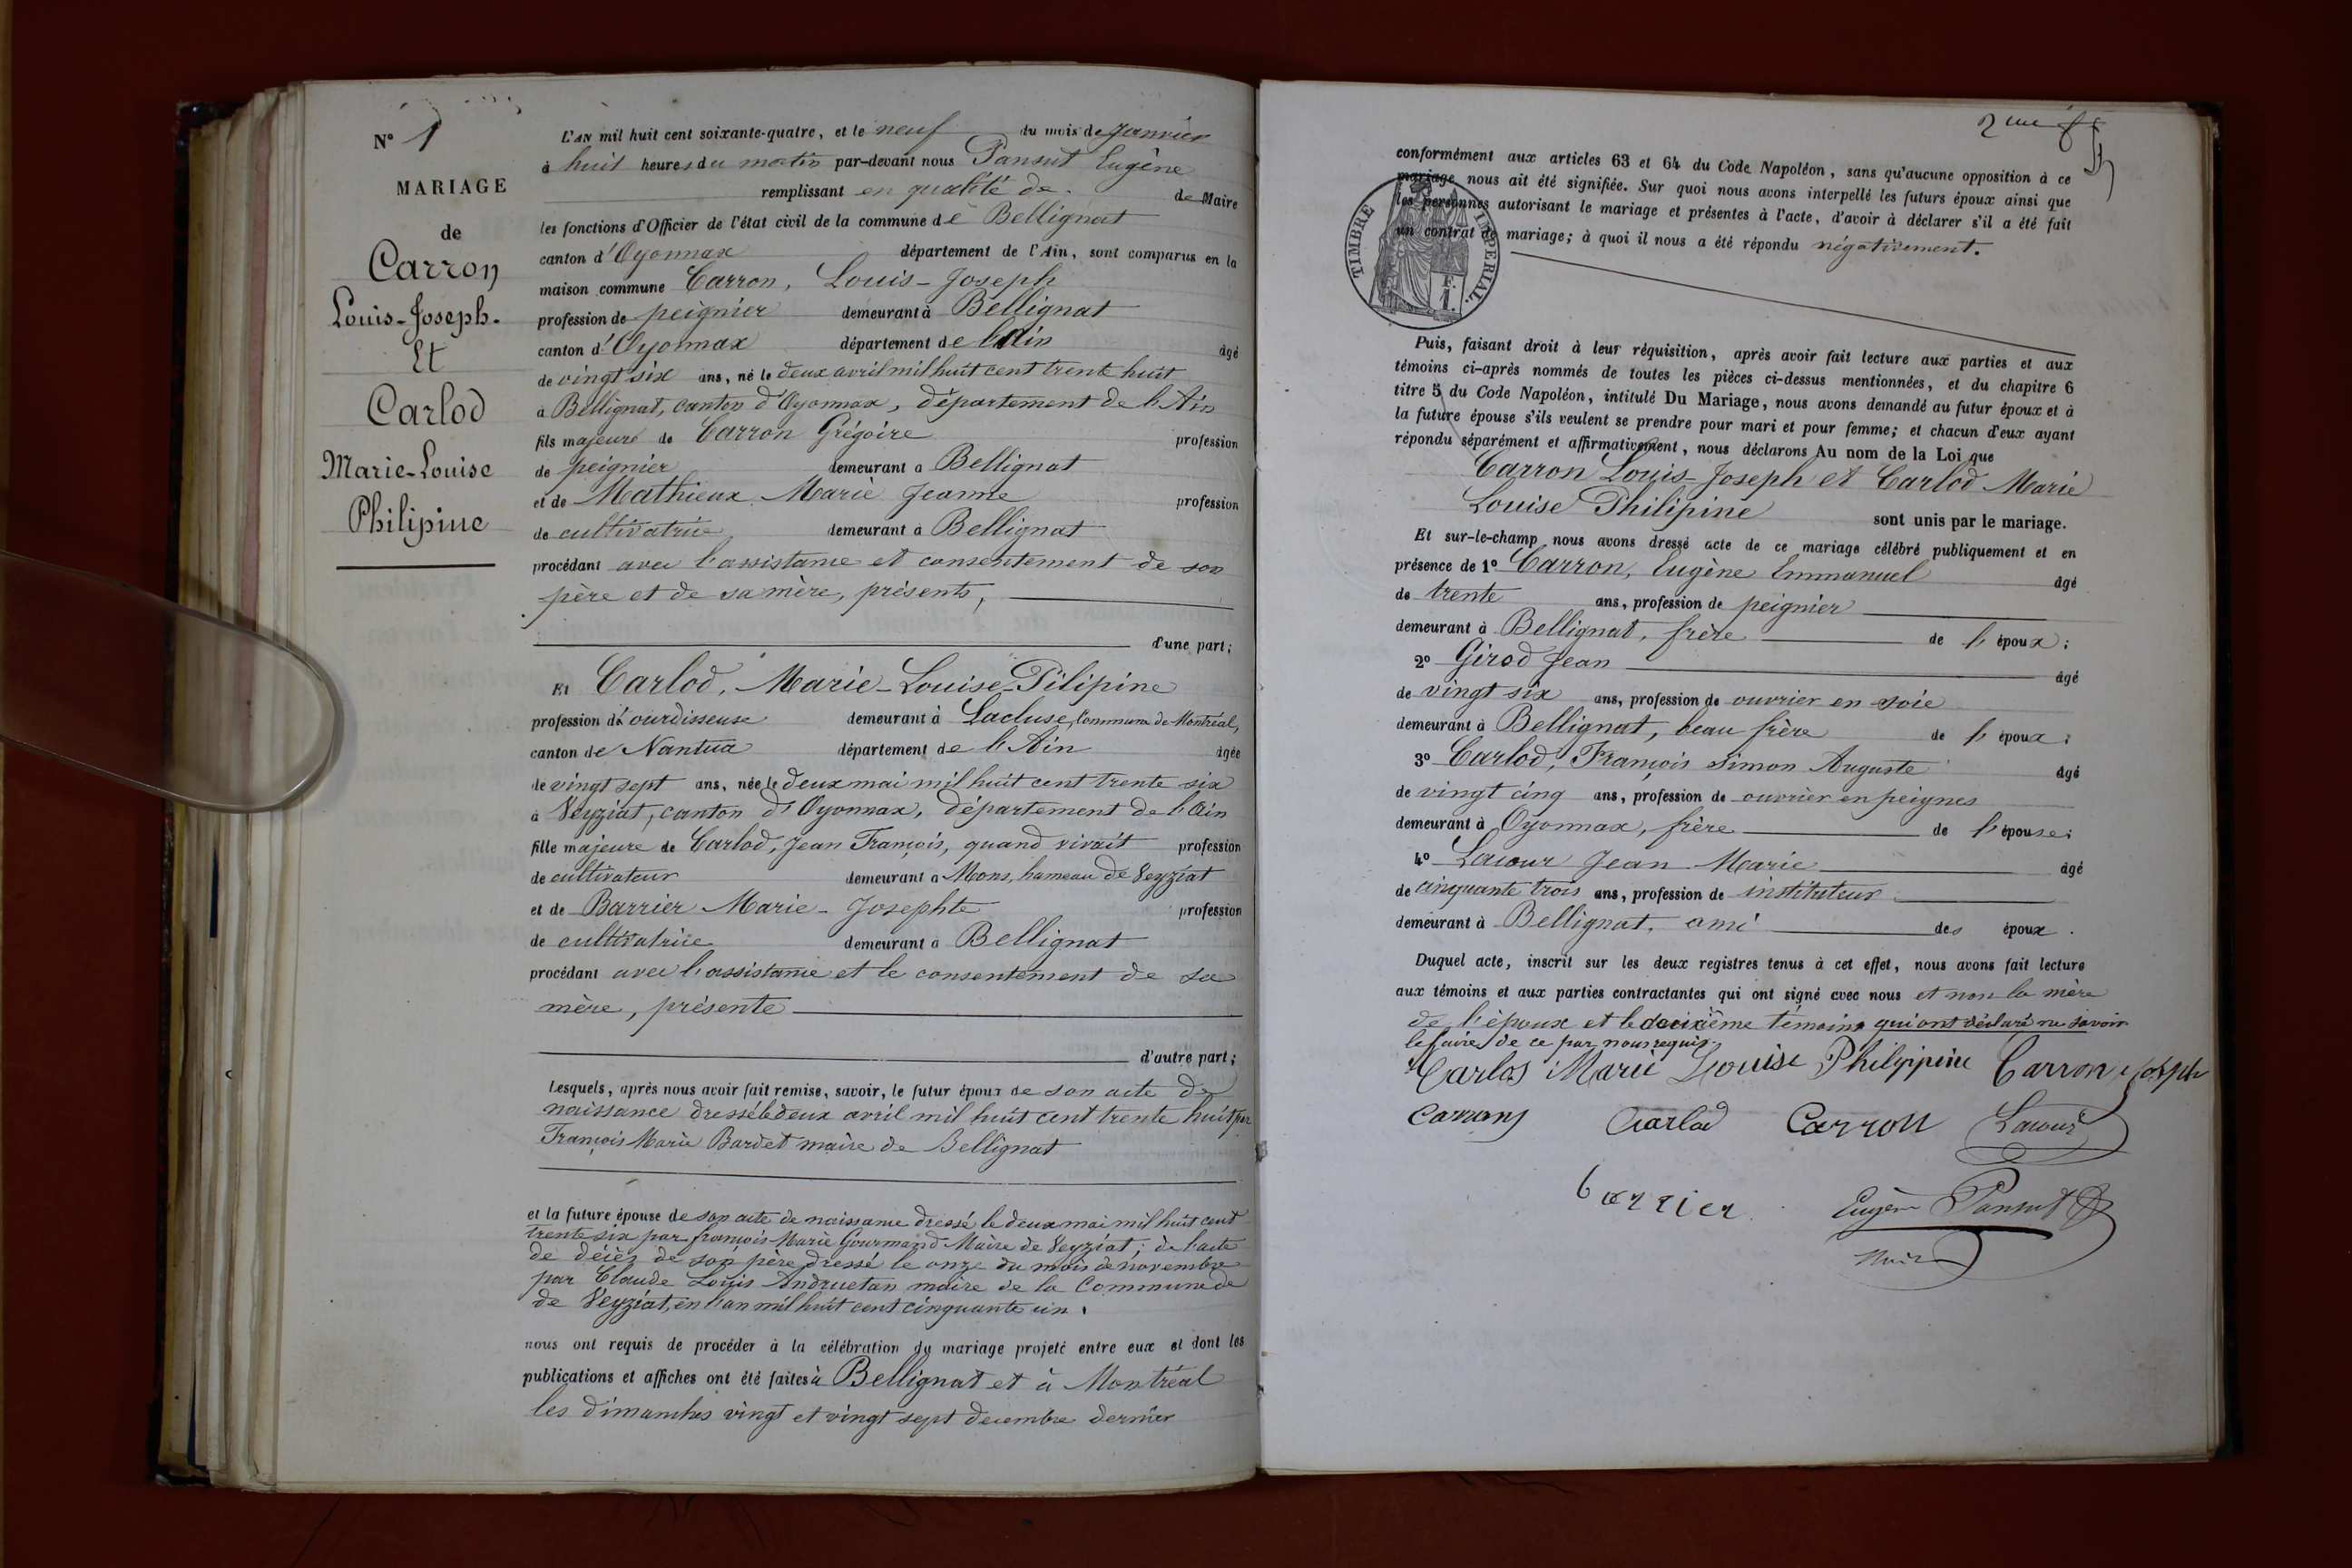 N° 1
MARIAGE
de
Carron
Louis-Joseph.
Et
Carlod
Marie-Louise
Philipine
L'AN mil huit cent soixante-quatre, et le neuf du mois de Janvier
à huit heures du matin par-devant nous Pansut Eugène
remplissant en qualité de de Maire
les fonctions d'Officier de l'état civil de la commune de Bellignat
canton d'Oyonnax département de l'Ain, sont comparus en la
maison commune Carron, Louis-Joseph
profession de peignier demeurant à Bellignat
canton d'Oyonnax département de l'Ain âgé
de vingt six ans, né le deux avril mil huit cent trente huit
à Bellignat, canton d'Oyonnax, département de l'Ain
fils majeur de Carron Grégoire profession
de peignier demeurant à Bellignat
et de Mathieux Marie Jeanne profession
de cultivatrice demeurant à Bellignat
procédant avec l'assistance et consentement de son
père et de sa mère, présents,
d'une part;
Et Carlod, Marie-Louise-Pilipine
profession d'ourdisseuse demeurant à Lacluse, Commune de Montréal,
canton de Nantua département de l'Ain âgée
de vingt sept ans, née le deux mai mil huit cent trente six
à Veyziat, canton d'Oyonnax, département de l'Ain
fille majeure de Carlod, Jean François, quand vivait profession
de cultivateur demeurant à Mons, hameau de Veyziat
et de Barrier Marie-Josephte profession
de cultivatrice demeurant à Bellignat
procédant avec l'assistance et le consentement de sa
mère, présente
d'autre part;
Lesquels, après nous avoir fait remise, savoir, le futur époux de son acte de
naissance dressé le deux avril mil huit cent trente huit par
François Marie Bardet maire de Bellignat
et la future épouse de son acte de naissance dressé le deux mai mil huit cent
trente six par françois Marie Gourmand Maire de Veyziat; de l'acte
de décès de son père dressé le onze du mois de novembre
par Claude Louis Andruetan maire de la Commune de
de Veyziat, en l'an mil huit cent cinquante un.
nous ont requis de procéder à la célébration du mariage projeté entre eux et dont les
publications et affiches ont été faites à Bellignat et à Montréal
les dimanches vingt et vingt sept decembre dernier
2me
conformément aux articles 63 et 64 du Code Napoléon, sans qu'aucune opposition à ce
mariage nous ait été signifiée. Sur quoi nous avons interpellé les futurs époux ainsi que
les personnes autorisant le mariage et présentes à l'acte, d'avoir à déclarer s'il a été fait
un contrat de mariage; à quoi il nous a été répondu négativement.
TIMBRE IMPÉRIAL.
F.
1.
Puis, faisant droit à leur réquisition, après avoir fait lecture aux parties et aux
témoins ci-après nommés de toutes les pièces ci-dessus mentionnées, et du chapitre 6
titre 5 du Code Napoléon, intitulé Du Mariage, nous avons demandé au futur époux et à
la future épouse s'ils veulent se prendre pour mari et pour femme; et chacun d'eux ayant
répondu séparément et affirmativement, nous déclarons Au nom de la Loi que
Carron Louis-Joseph et Carlod Marie
Louise Philipine sont unis par le mariage.
Et sur-le-champ nous avons dressé acte de ce mariage célébré publiquement et en
présence de 1° Carron, Eugène Emmanuel âgé
de trente ans, profession de peignier
demeurant à Bellignat, frère de l'époux;
2° Girod Jean âgé
de vingt six ans, profession de ouvrier en soie
demeurant à Bellignat, beau frère de l'époux;
3° Carlod, François Simon Auguste âgé
de vingt cinq ans, profession de ouvrier en peignes
demeurant à Oyonnax, frère de l'épouse;
4° Lacour Jean Marie âgé
de cinquante trois ans, profession de instituteur
demeurant à Bellignat, ami des époux.
Duquel acte, inscrit sur les deux registres tenus à cet effet, nous avons fait lecture
aux témoins et aux parties contractantes qui ont signé avec nous et non la mère
de l'époux et le deuxième témoin qui ont déclaré ne savoir
le faire de ce par nous requis.
Carlod Marie Louise Philippine Carron Joseph
Carron Carlod Carron Lacour
barrier Eugène Pansut
Maire